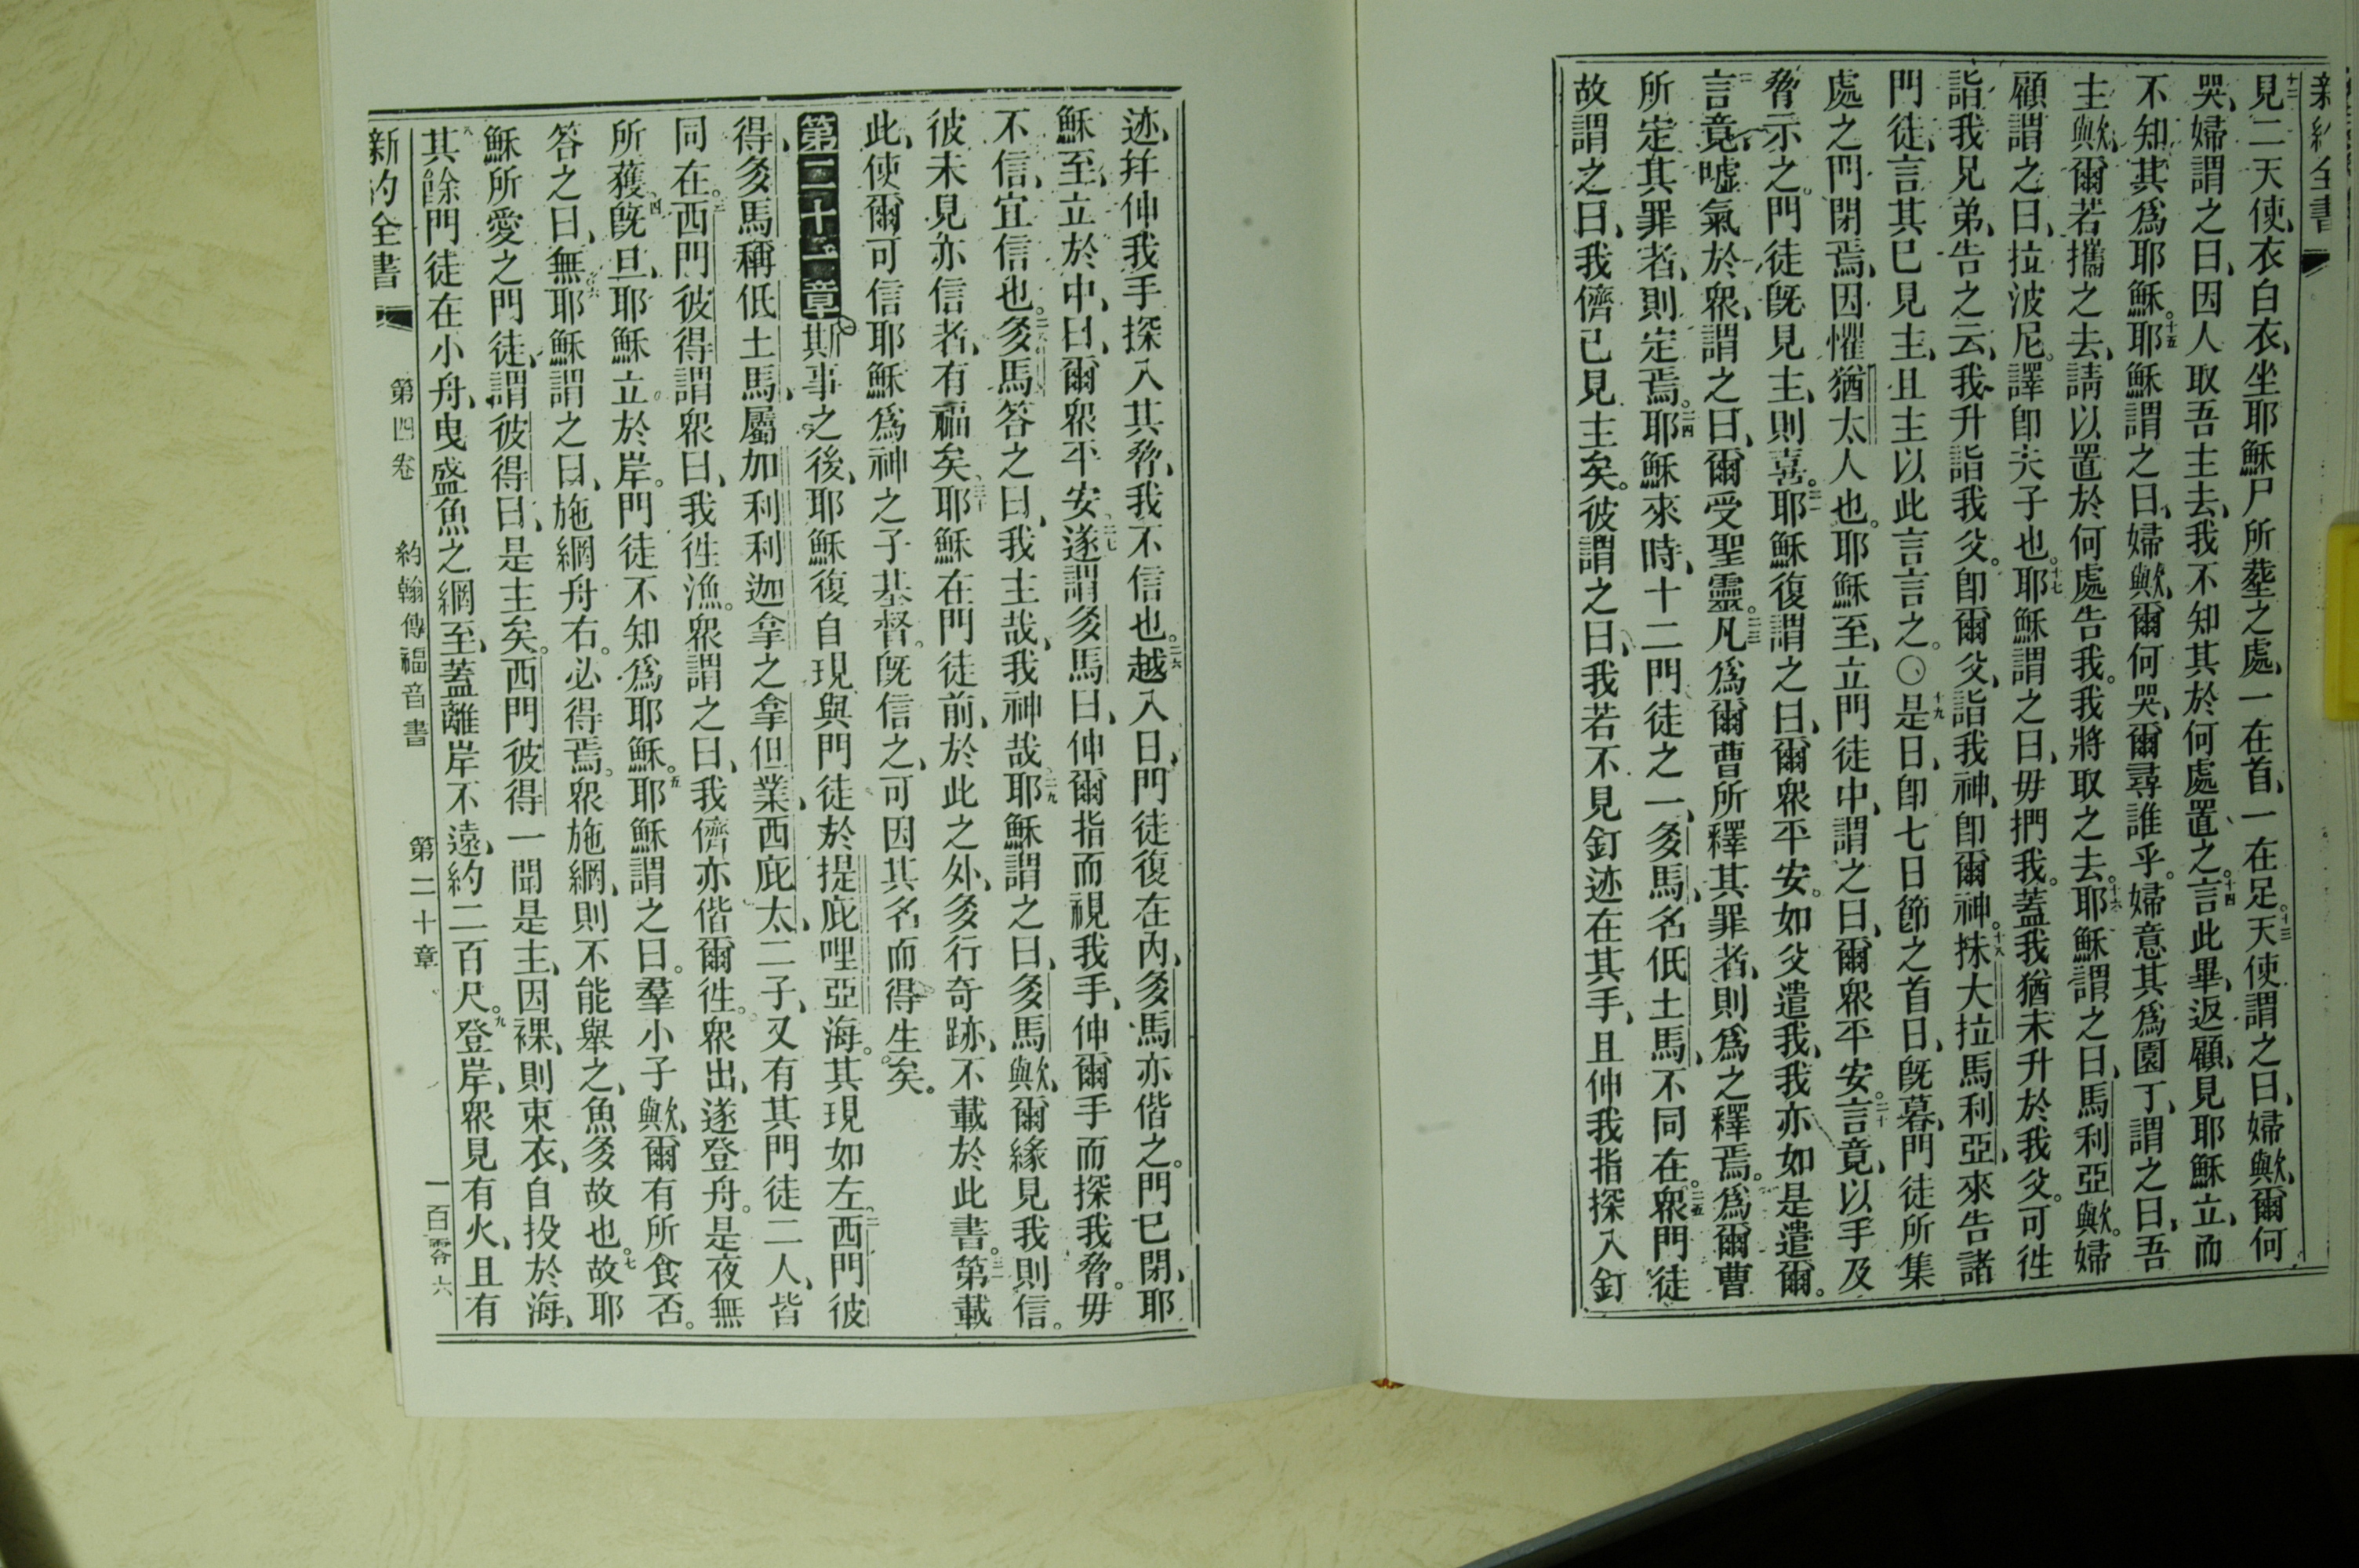 新約全書
見二天使、衣白衣、坐耶穌尸所葬之處、一在首、一在足。十三天使謂之曰、婦歟、爾何
哭、婦謂之曰、因人取吾主去、我不知其於何處置之。十四言此畢、返顧、見耶穌立、而
不知其爲耶穌。十五耶穌謂之曰、婦歟、爾何哭、爾尋誰乎。婦意其爲園丁、謂之曰、吾
主歟、爾若攜之去、請以置於何處告我。我將取之去。十六耶穌謂之曰、馬利亞歟。婦
顧謂之曰、拉波尼。譯卽夫子也。十七耶穌謂之曰、毋捫我。蓋我猶未升於我父。可徃
詣我兄弟、告之云、我升詣我父。卽爾父、詣我神、卽爾神。十八抹大拉馬利亞、來告諸
門徒、言其已見主、且主以此言言之。〇十九是日、卽七日節之首日、旣暮、門徒所集
處之門閉焉、因懼猶太人也。耶穌至、立門徒中、謂之曰、爾衆平安。二十言竟、以手及
脅示之。門徒旣見主、則喜。二一耶穌復謂之曰、爾衆平安。如父遣我、我亦如是遣爾。
二二言竟、噓氣於衆、謂之曰、爾受聖靈。二三凡爲爾曹所釋其罪者、則爲之釋焉。爲爾曹
所定其罪者、則定焉。二四耶穌來時、十二門徒之一、多馬、名低土馬、不同在。二五衆門徒
故謂之曰、我儕已見主矣。彼謂之曰、我若不見釘迹在其手、且伸我指探入釘
迹、幷伸我手探入其脅、我不信也。二六越八日、門徒復在內、多馬亦偕之。門已閉、耶
穌至、立於中、曰、爾衆平安、二七遂謂多馬曰、伸爾指而視我手、伸爾手而探我脅。毋
不信、宜信也。二八多馬答之曰、我主哉、我神哉、二九耶穌謂之曰、多馬歟、爾緣見我、則信。
彼未見亦信者、有福矣、三十耶穌在門徒前、於此之外、多行奇跡、不載於此書。三一第載
此、使爾可信耶穌爲神之子基督。旣信之、可因其名而得生矣。
第二十一章 斯事之後、耶穌復自現與門徒於提庇哩亞海。其現如左。二西門彼
得、多馬稱低土馬、屬加利利迦拿之拿但業、西庇太二子、又有其門徒二人、皆
同在。三西門彼得謂衆曰、我徃漁。衆謂之曰、我儕亦偕爾徃。衆出、遂登舟。是夜無
所獲、四旣旦、耶穌立於岸。門徒不知爲耶穌。五耶穌謂之曰。羣小子歟、爾有所食否。
答之曰、無、六耶穌謂之曰、施網舟右。必得焉。衆施網、則不能舉之、魚多故也。七故耶
穌所愛之門徒、謂彼得曰、是主矣。西門彼得一聞是主、因裸、則束衣、自投於海、
八其餘門徒在小舟、曳盛魚之網至、蓋離岸不遠、約二百尺。九登岸、衆見有火、且有
新約全書 第四卷 約翰傳福音書 第二十章 一百零六